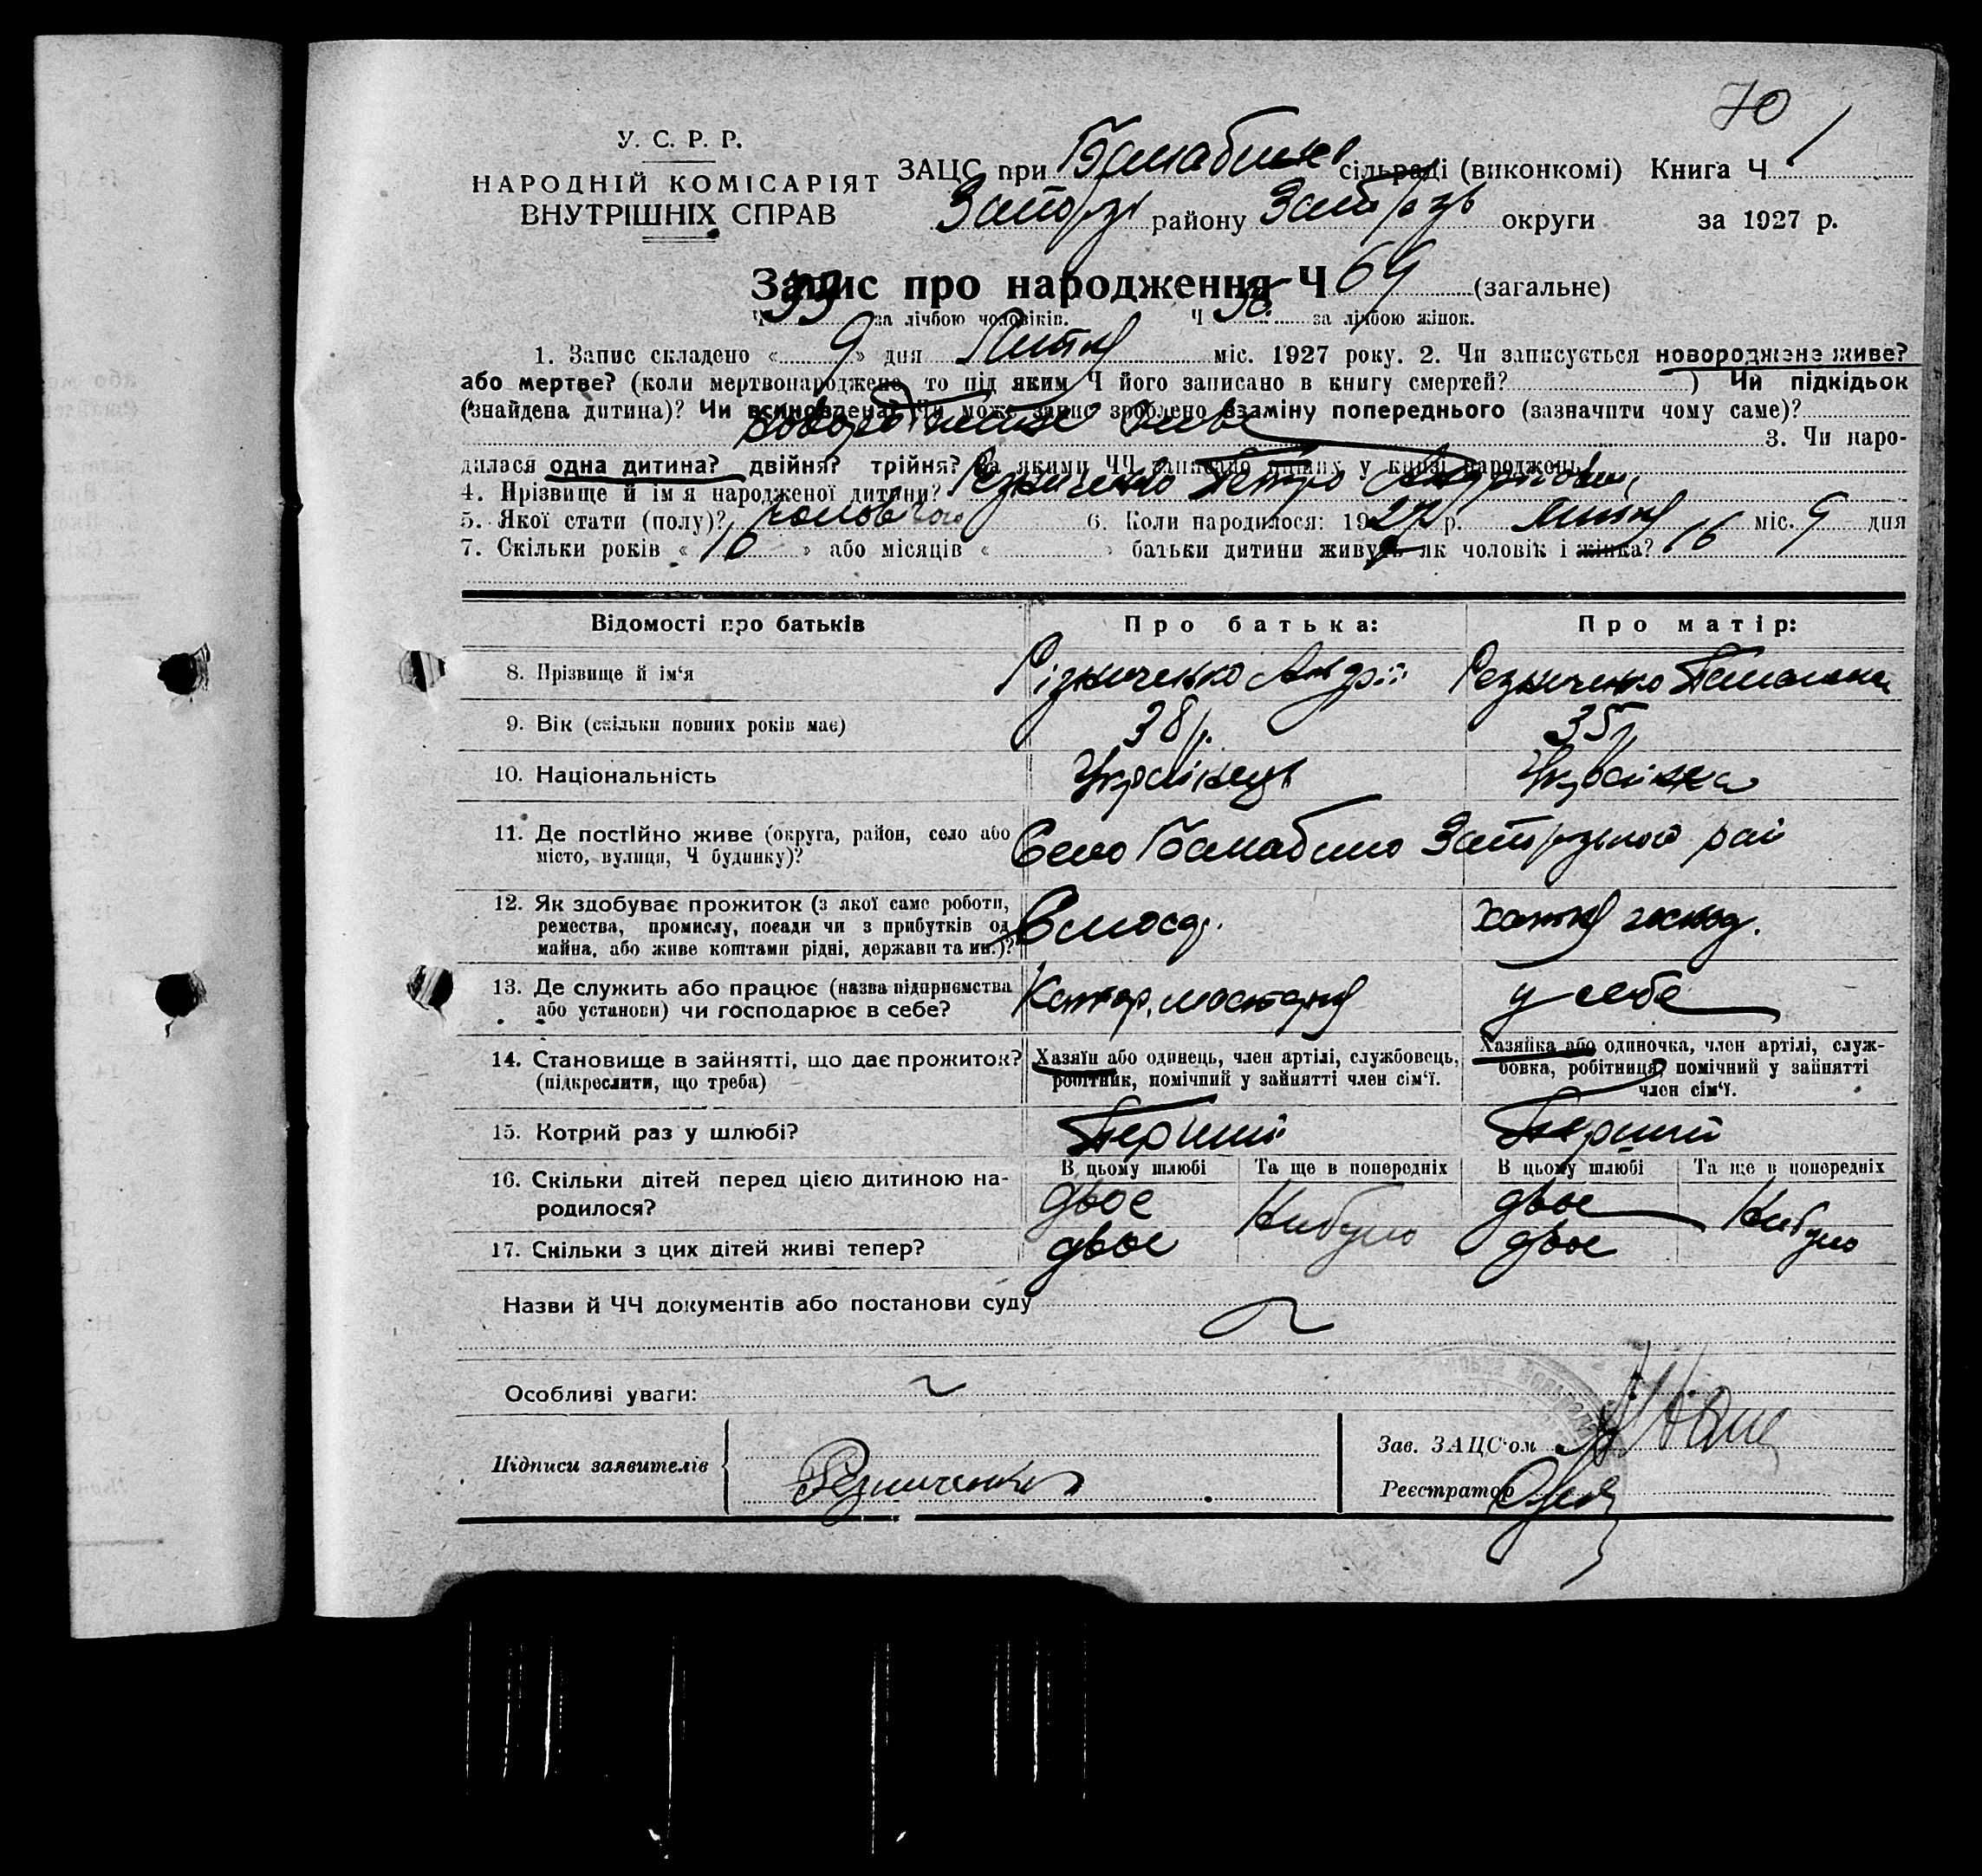 70
У. С. Р. Р.
НАРОДНІЙ КОМІСАРІЯТ
ВНУТРІШНІХ СПРАВ
ЗАЦС при сільраді (виконкомі) Книга Ч 1
району округи за 1927 р.
Запис про народження Ч 69 (загальне)
Ч 33 за лічбою чоловіків. Ч 36 за лічбою жінок.
1. Запис складено « 9 » дня міс. 1927 року. 2. Чи записується новороджене живе?
або мертве? (коли мертвонароджене, то під яким Ч його записано в книгу смертей? ) Чи підкідьок
(знайдена дитина)? Чи всиновлена? Чи може запис зроблено взаміну попереднього (зазначити чому саме)?
живе 3. Чи наро-
дилася одна дитина? двійня? трійня? За якими ЧЧ записано у книзі народжень
4. Прізвище й ім'я народженої дитини? Резниченко Петро
5. Якої стати (полу)? чоловічого 6. Коли народилося: 1927 р. міс. 9 дня
7. Скільки років « » або місяців « » батьки дитини живуть як чоловік і жінка? 16
Відомості про батьків Про батька: Про матір:
8. Прізвище й ім'я Різниченко Андрій Резниченко
9. Вік (скільки повних років має) 38 р. 35 р.
10. Національність Українець Українка
11. Де постійно живе (округа, район, село або
місто, вулиця, Ч будинку)? Село Балабино рай
12. Як здобуває прожиток (з якої саме роботи,
ремества, промислу, посади чи з прибутків од
майна, або живе коштами рідні, держави та ин.)? Слюсар. господ.
13. Де служить або працює (назва підприємства
або установи) чи господарює в себе? у себе
14. Становище в зайнятті, що дає прожиток?
(підкреслити, що треба)
Хазяїн або одинець, член артілі, службовець,
робітник, помічний у зайнятті член сім'ї.
Хазяйка або одиночка, член артілі, служ-
бовка, робітниця, помічний у зайнятті
член сім'ї.
15. Котрий раз у шлюбі? Перший Перший
В цьому шлюбі Та ще в попередніх В цьому шлюбі Та ще в попередніх
16. Скільки дітей перед цією дитиною на-
родилося? двоє Небуло двоє Небуло
17. Скільки з цих дітей живі тепер? двоє двоє
Назви й ЧЧ документів або постанови суду
Особливі уваги:
Підписи заявителів Резниченко
Зав. ЗАЦС'ом
Реєстратор